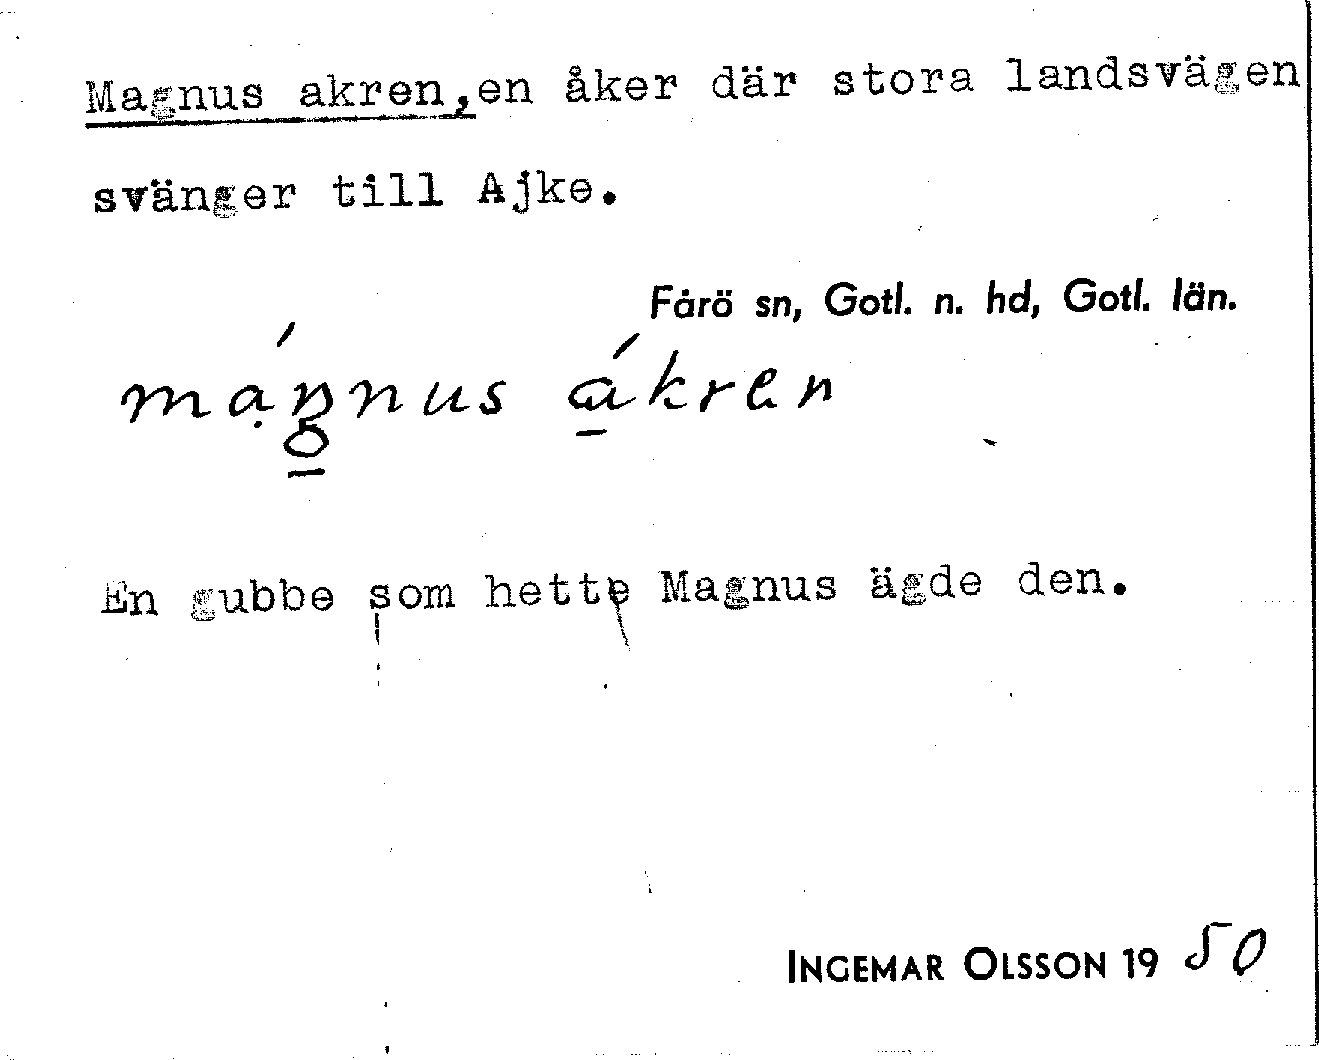 Magnus akren, en åker där stora landsvägen
svänger till Ajke.
Fårö sn, Gotl. n. hd, Gotl. län.
ákren
En gubbe som hette Magnus ägde den.
INGEMAR OLSSON 19 50